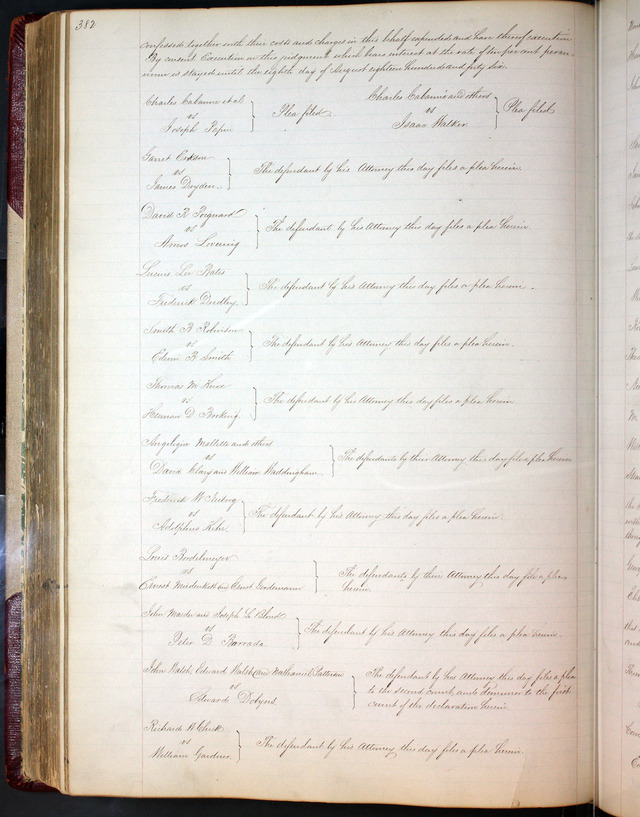 382
confessed together with their costs and charges in this behalf expended and have thereof execution
By consent Execution on this judgment which bears interest at the rate of ten per cent per an-
num is stayed until the eighth day of August eighteen hundred and forty six.
Charles Cabanne et al
vs
Joseph Papin
Plea filed.
Charles Cabanne and others
vs
Isaac Walker
Plea filed
Garret
vs
James Dryden
The defendant by his Attorney this day files a plea herein.
David R
vs
Amos Lovering
The defendant by his Attorney this day files a plea herein.
Lucius Lee Bates
vs
Frederick Dudley
The defendant by his Attorney this day files a plea herein.
Smith R Robinson
vs
Edwin R Smith
The defendant by his Attorney this day files a plea herein.
Thomas M
vs
Herman D
The defendant by his Attorney this day files a plea herein
and others
vs
David Clary and William Waddingham
The defendants by their Attorney this day file a plea herein
Frederick W
vs
Adolphus Kehr
The defendant by his Attorney this day files a plea herein.
Louis
vs
Ernst and Ernst
The defendants by their Attorney this day file a plea
herein.
John and Joseph L Blond
vs
Peter D Barrada
The defendant by his Attorney this day files a plea herein.
John Walsh, Edward Walsh and Nathaniel
vs
Edward Dobyns
The defendant by his Attorney this day files a plea
to the second count and demurrer to the first
count of the declaration herein
Richard B Cheek
vs
William Gardner.
The defendant by his Attorney this day files a plea herein.